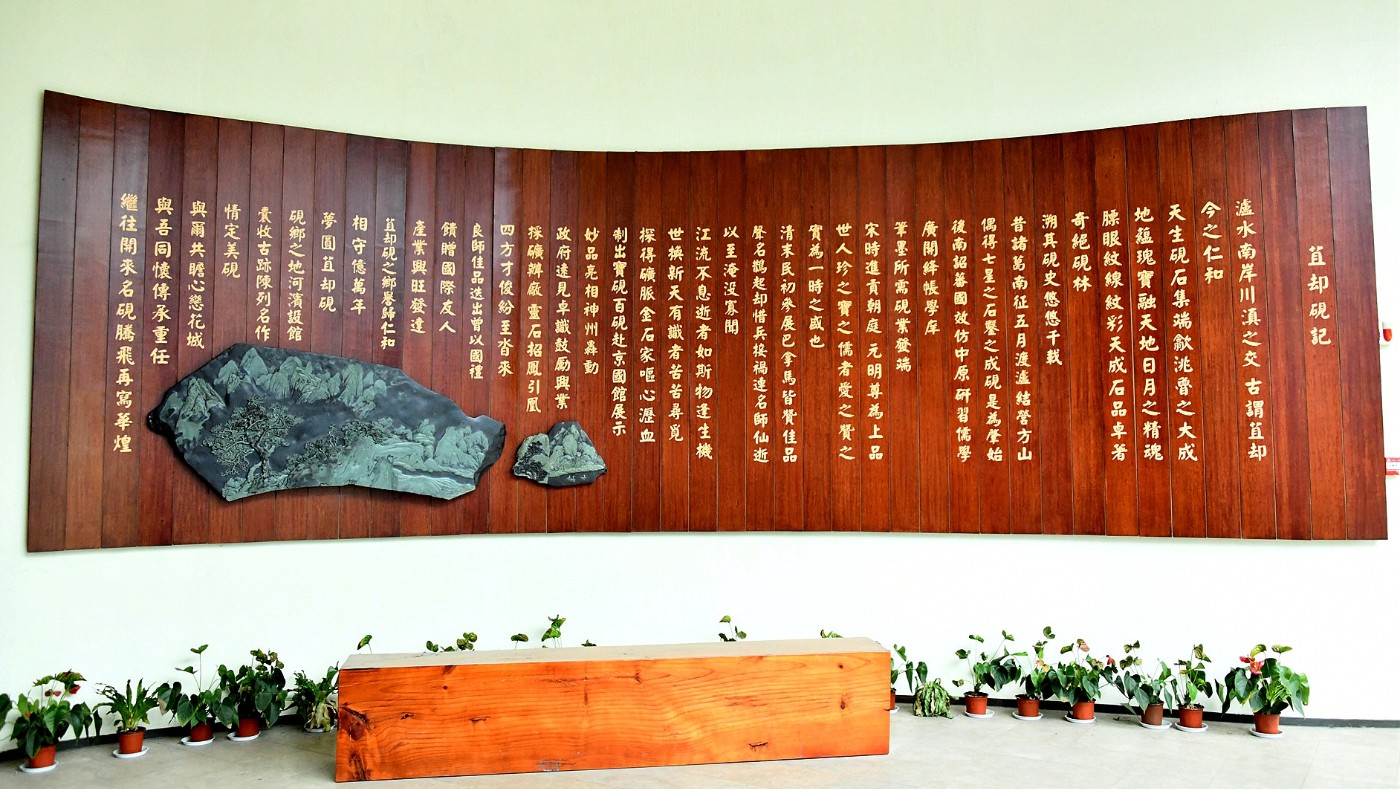 苴却硯記
瀘水南岸川滇之交 古謂苴却
今之仁和
天生硯石集端歙洮魯之大成
地蘊瑰寶融天地日月之精魂
膘眼紋線紋彩天成石品卓著
奇絕硯林
溯其硯史悠悠千載
昔諸葛南征五月渡瀘結營方山
偶得七星之石鑿之成硯是為肇始
後南詔蕃國效仿中原研習儒學
廣開絳帳學庠
筆墨所需硯業發端
宋時進貢朝庭 元明尊為上品
世人珍之寶之儒者愛之贊之
實為一時之盛也
清末民初參展巴拿馬皆贊佳品
聲名鵲起却惜兵接禍連名師仙逝
以至淹沒寡聞
江流不息逝者如斯物逢生機
世換新天有識者苦苦尋覓
探得礦脈金石家嘔心瀝血
制出寶硯百硯赴京國館展示
妙品亮相神州轟動
政府遠見卓識鼓勵興業
採礦辦廠靈石招鳳引凰
四方才俊紛至沓來
良師佳品迭出曾以國禮
饋贈國際友人
產業興旺發達
苴却硯之鄉譽歸仁和
相守億萬年
夢圓苴却硯
硯鄉之地河濱設館
囊收古跡陳列名作
情定美硯
與爾共瞻心戀花城
與吾同懷傳承重任
繼往開來名硯騰飛再寫華煌